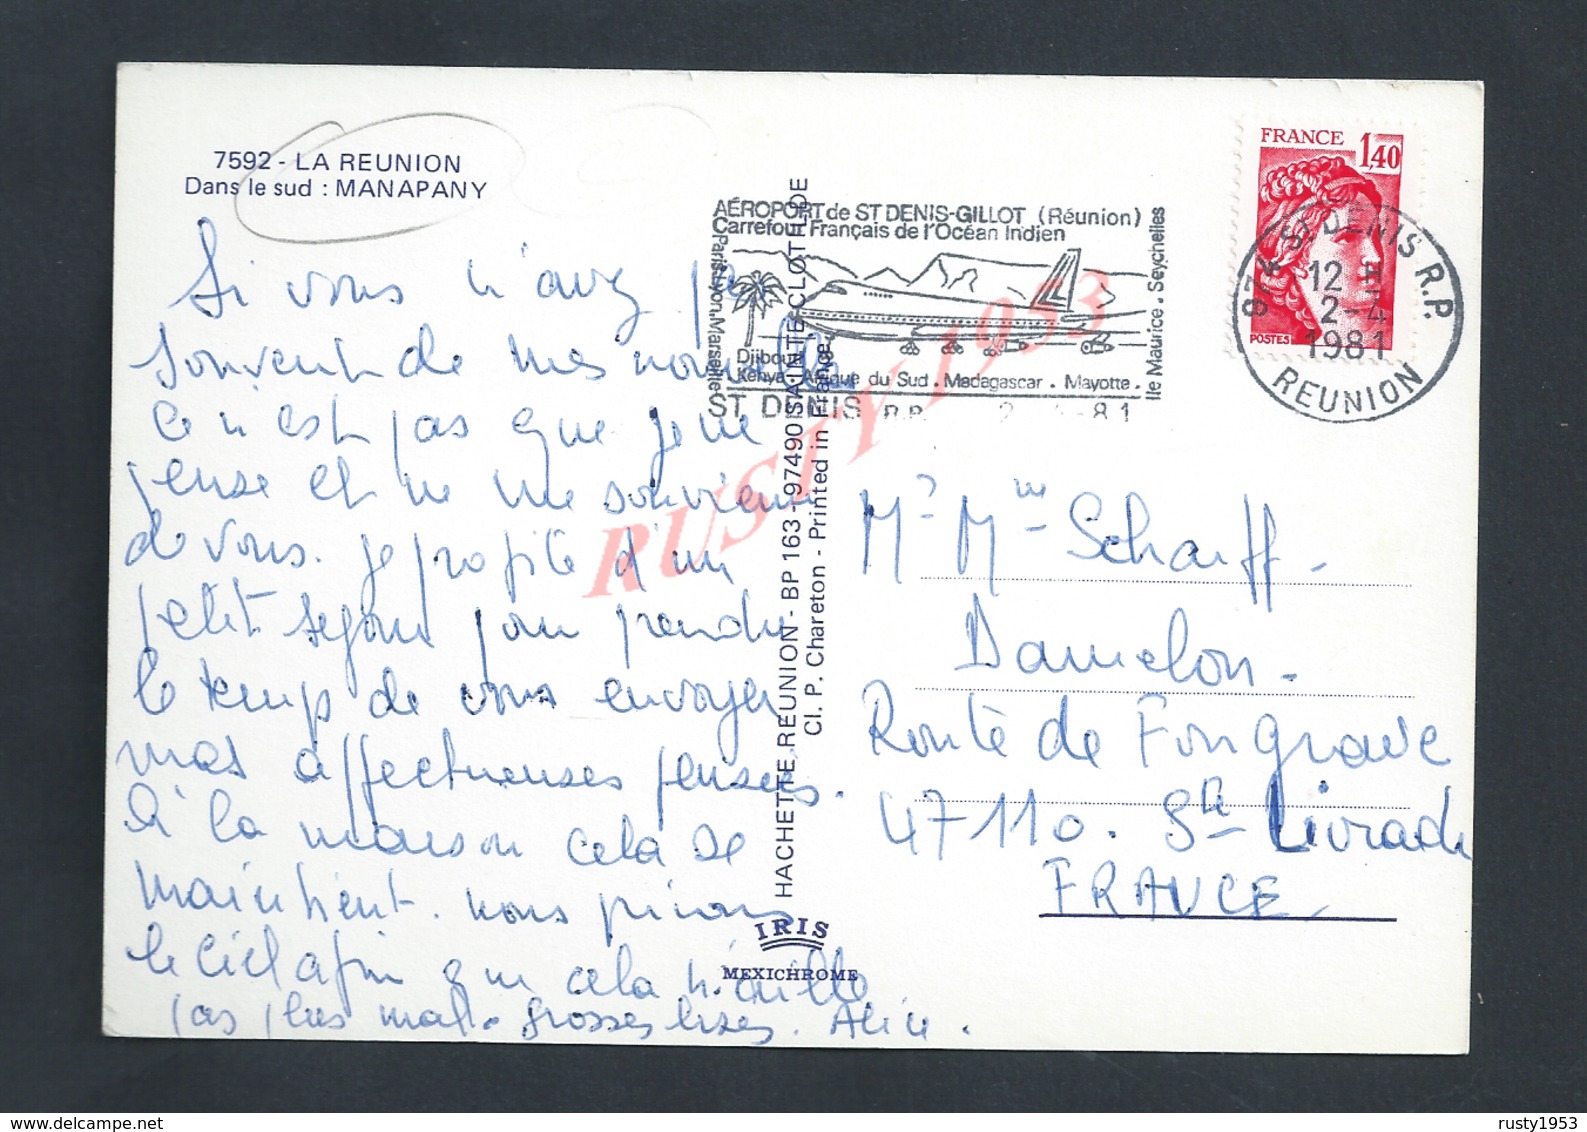 7592 - LA REUNION
Dans le sud : MANAPANY
Si vous n'avez pas
souvent de mes nouvelles
ce n'est pas que je ne
pense et ne me souvienne
de vous. je profite d'un
petit séjour pour prendre
le temps de vous envoyer
mes affectueuses pensées.
à la maison cela se
maintient. nous prions
le Ciel afin que cela n'aille
pas plus mal. grosses bises. Alice.
HACHETTE REUNION - BP 163 - 97490 SAINTE CLOTILDE
Cl. P. Chareton - Printed in France
IRIS
MEXICHROME
AÉROPORT de ST DENIS-GILLOT (Réunion)
Carrefour Français de l'Océan Indien
Paris.Lyon.Marseille
Djibouti
Kenya. Afrique du Sud . Madagascar . Mayotte .
Ile Maurice . Seychelles
ST DENIS R.P. 2-4-81
FRANCE 1,40
POSTES
974 ST DENIS R.P.
12 H
2-4
1981
REUNION
Mr Mme Scharff.
Damelon.
Route de Fongrave
47110. Ste Livrade
FRANCE
RUSTY 1953
rusty1953